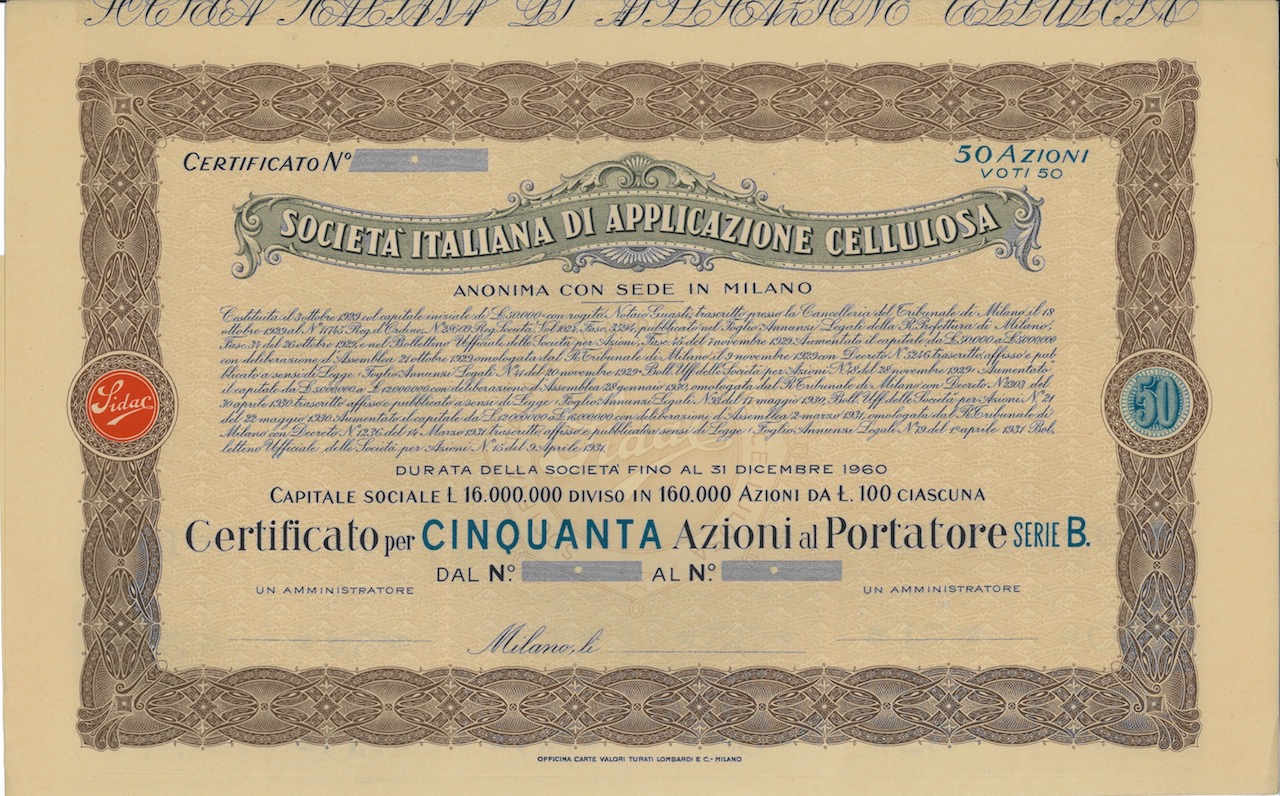 SOCIETÀ ITALIANA DI APPLICAZIONE CELLULOSA
CERTIFICATO Nº
50 AZIONI
VOTI 50
SOCIETÀ ITALIANA DI APPLICAZIONE CELLULOSA
ANONIMA CON SEDE IN MILANO
Costituita il 3 ottobre 1929 col capitale iniziale di Ł 50.000 con rogito Notaio Guasti, trascritto presso la Cancelleria del Tribunale di Milano il 18
ottobre 1929 al Nº 11745 Reg. d'Ordine, Nº 28609 Reg. Società, Vol. 1024, Fasc. 3394, pubblicato nel Foglio Annunzi Legali della R. Prefettura di Milano,
Fasc. 34 del 26 ottobre 1929, e nel Bollettino Ufficiale delle Società per Azioni, Fasc. 45 del 7 novembre 1929. Aumentato il capitale da Ł 50.000 a Ł 5000000
con deliberazione d'Assemblea 21 ottobre 1929, omologata dal R. Tribunale di Milano, il 9 novembre 1929 con Decreto Nº 3246 trascritto affisso e pub-
blicato a sensi di Legge (Foglio Annunzi Legali Nº 41 del 20 novembre 1929 - Boll. Uff. delle Società per Azioni Nº 48 del 28 novembre 1929) Aumentato
il capitale da Ł 5000000 a Ł 12000000 con deliberazione d'Assemblea 28 gennaio 1930, omologata dal R. Tribunale di Milano con Decreto Nº 2103 del
30 aprile 1930 trascritto affisso e pubblicato a sensi di Legge (Foglio Annunzi Legali Nº 93 del 17 maggio 1930, Boll. Uff. delle Società per Azioni Nº 21
del 22 maggio 1930. Aumentato il capitale da Ł 12000000 a Ł 16000000 con deliberazione d'Assemblea 2 marzo 1931, omologata dal R. Tribunale di
Milano con Decreto Nº 1236 del 14 Marzo 1931 trascritto affisso e pubblicato a sensi di Legge (Foglio Annunzi Legali Nº 79 del 1º aprile 1931 Bol-
lettino Ufficiale delle Società per Azioni Nº 15 del 9 Aprile 1931.
Sidac
50
DURATA DELLA SOCIETÀ FINO AL 31 DICEMBRE 1960
CAPITALE SOCIALE Ł 16.000.000 DIVISO IN 160.000 AZIONI DA Ł. 100 CIASCUNA
Certificato per CINQUANTA Azioni al Portatore SERIE B.
DAL Nº. AL Nº.
UN AMMINISTRATORE
UN AMMINISTRATORE
Milano, li
OFFICINA CARTE VALORI TURATI LOMBARDI E C. - MILANO